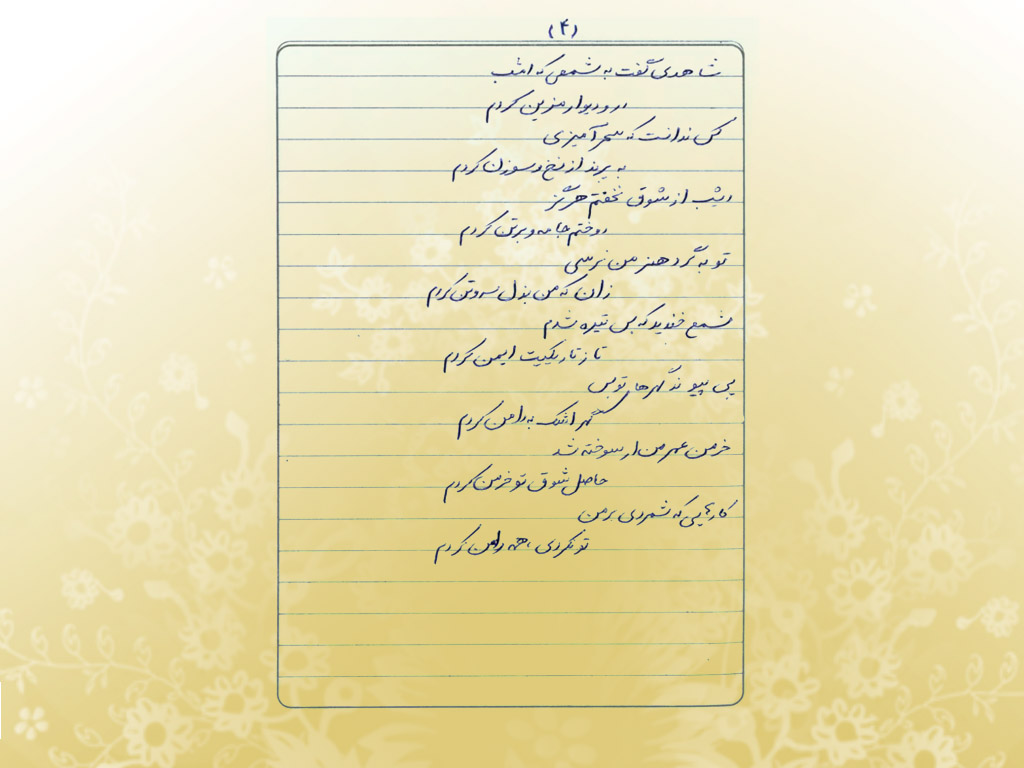 (۴)
شاهدی گفت به شمعی که امشب
در و دیوار مزین کردم
کس ندانست که سحرآمیزی
به پرند از نخ و سوزن کردم
دیشب از شوق نخفتم هرگز
دوختم جامه و برتن کردم
تو به گرد هنر من نرسی
زان که من بذل سر و تن کردم
شمع خندید که بس تیره شدم
تا ز تاریکیت ایمن کردم
پی پیوند گهرهای تو بس
گهر اشک به دامن کردم
خرمن عمر من ار سوخته شد
حاصل شوق تو خرمن کردم
کارهایی که شمردی بر من
تو نکردی، همه را من کردم